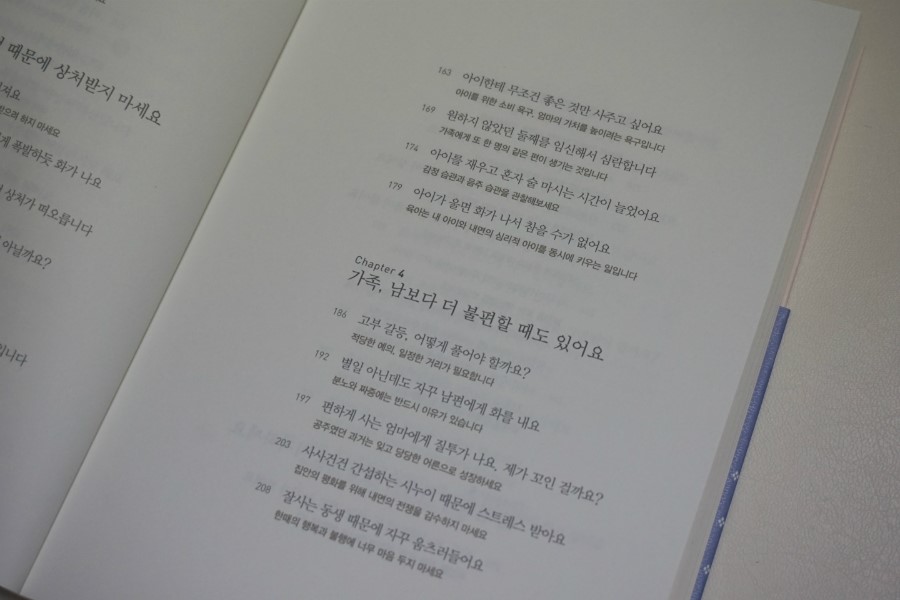 때문에 상처받지 마세요
하지 마세요
폭발하듯 화가 나요
상처가 떠오릅니다
아닐까요?
입니다
163 아이한테 무조건 좋은 것만 사주고 싶어요
아이를 위한 소비 욕구, 엄마의 가치를 높이려는 욕구입니다
169 원하지 않았던 둘째를 임신해서 심란합니다
가족에게 또 한 명의 같은 편이 생기는 것입니다
174 아이를 재우고 혼자 술 마시는 시간이 늘었어요
감정 습관과 음주 습관을 관찰해보세요
179 아이가 울면 화가 나서 참을 수가 없어요
육아는 내 아이와 내면의 심리적 아이를 동시에 키우는 일입니다
Chapter 4
가족, 남보다 더 불편할 때도 있어요
186 고부 갈등, 어떻게 풀어야 할까요?
적당한 예의, 일정한 거리가 필요합니다
192 별일 아닌데도 자꾸 남편에게 화를 내요
분노와 짜증에는 반드시 이유가 있습니다
197 편하게 사는 엄마에게 질투가 나요. 제가 꼬인 걸까요?
공주였던 과거는 잊고 당당한 어른으로 성장하세요
203 사사건건 간섭하는 시누이 때문에 스트레스 받아요
집안의 평화를 위해 내면의 전쟁을 감수하지 마세요
208 잘사는 동생 때문에 자꾸 움츠러들어요
한때의 행복과 불행에 너무 마음 두지 마세요